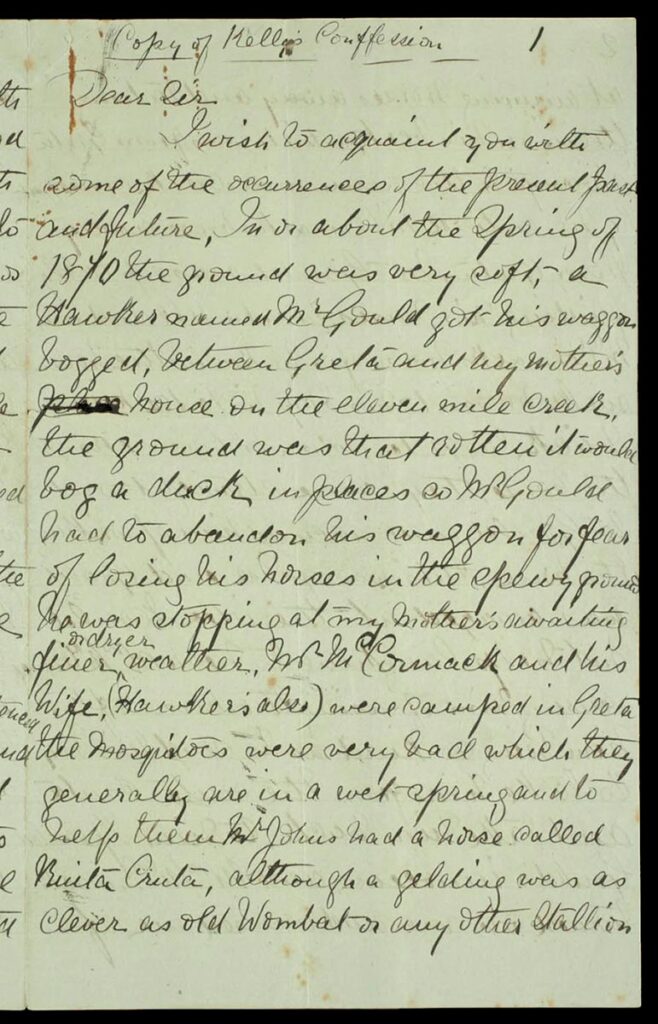 Copy of Kellys Conffession 1
Dear Sir
I wish to acquaint you with
some of the occurrences of the present past
and future, In or about the Spring of
1870 the ground was very soft, a
Hawker named Mr Gould got his waggon
bogged, between Greta and my mother's
house on the eleven mile creek,
the ground was that rotten it would
bog a duck in places so Mr Gould
had to abandon his waggon for fear
of losing his horses in the spewy ground
he was stopping at my Mother's awaiting
finer or dryer weather, Mr McCormack and his
Wife, (Hawkers also) were camped in Greta
the mosquitoes were very bad which they
generally are in a wet spring and to
help them Mr Johns had a horse called
Ruita Cruta, although a gelding was as
clever as old Wombat or any other Stallion